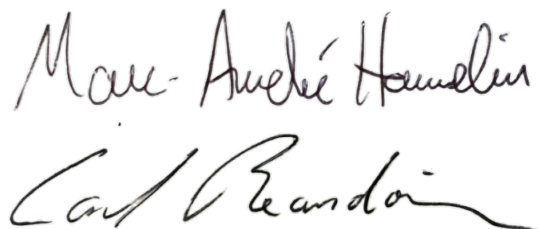 Marc-André Hamelin
Carl Beaudoin